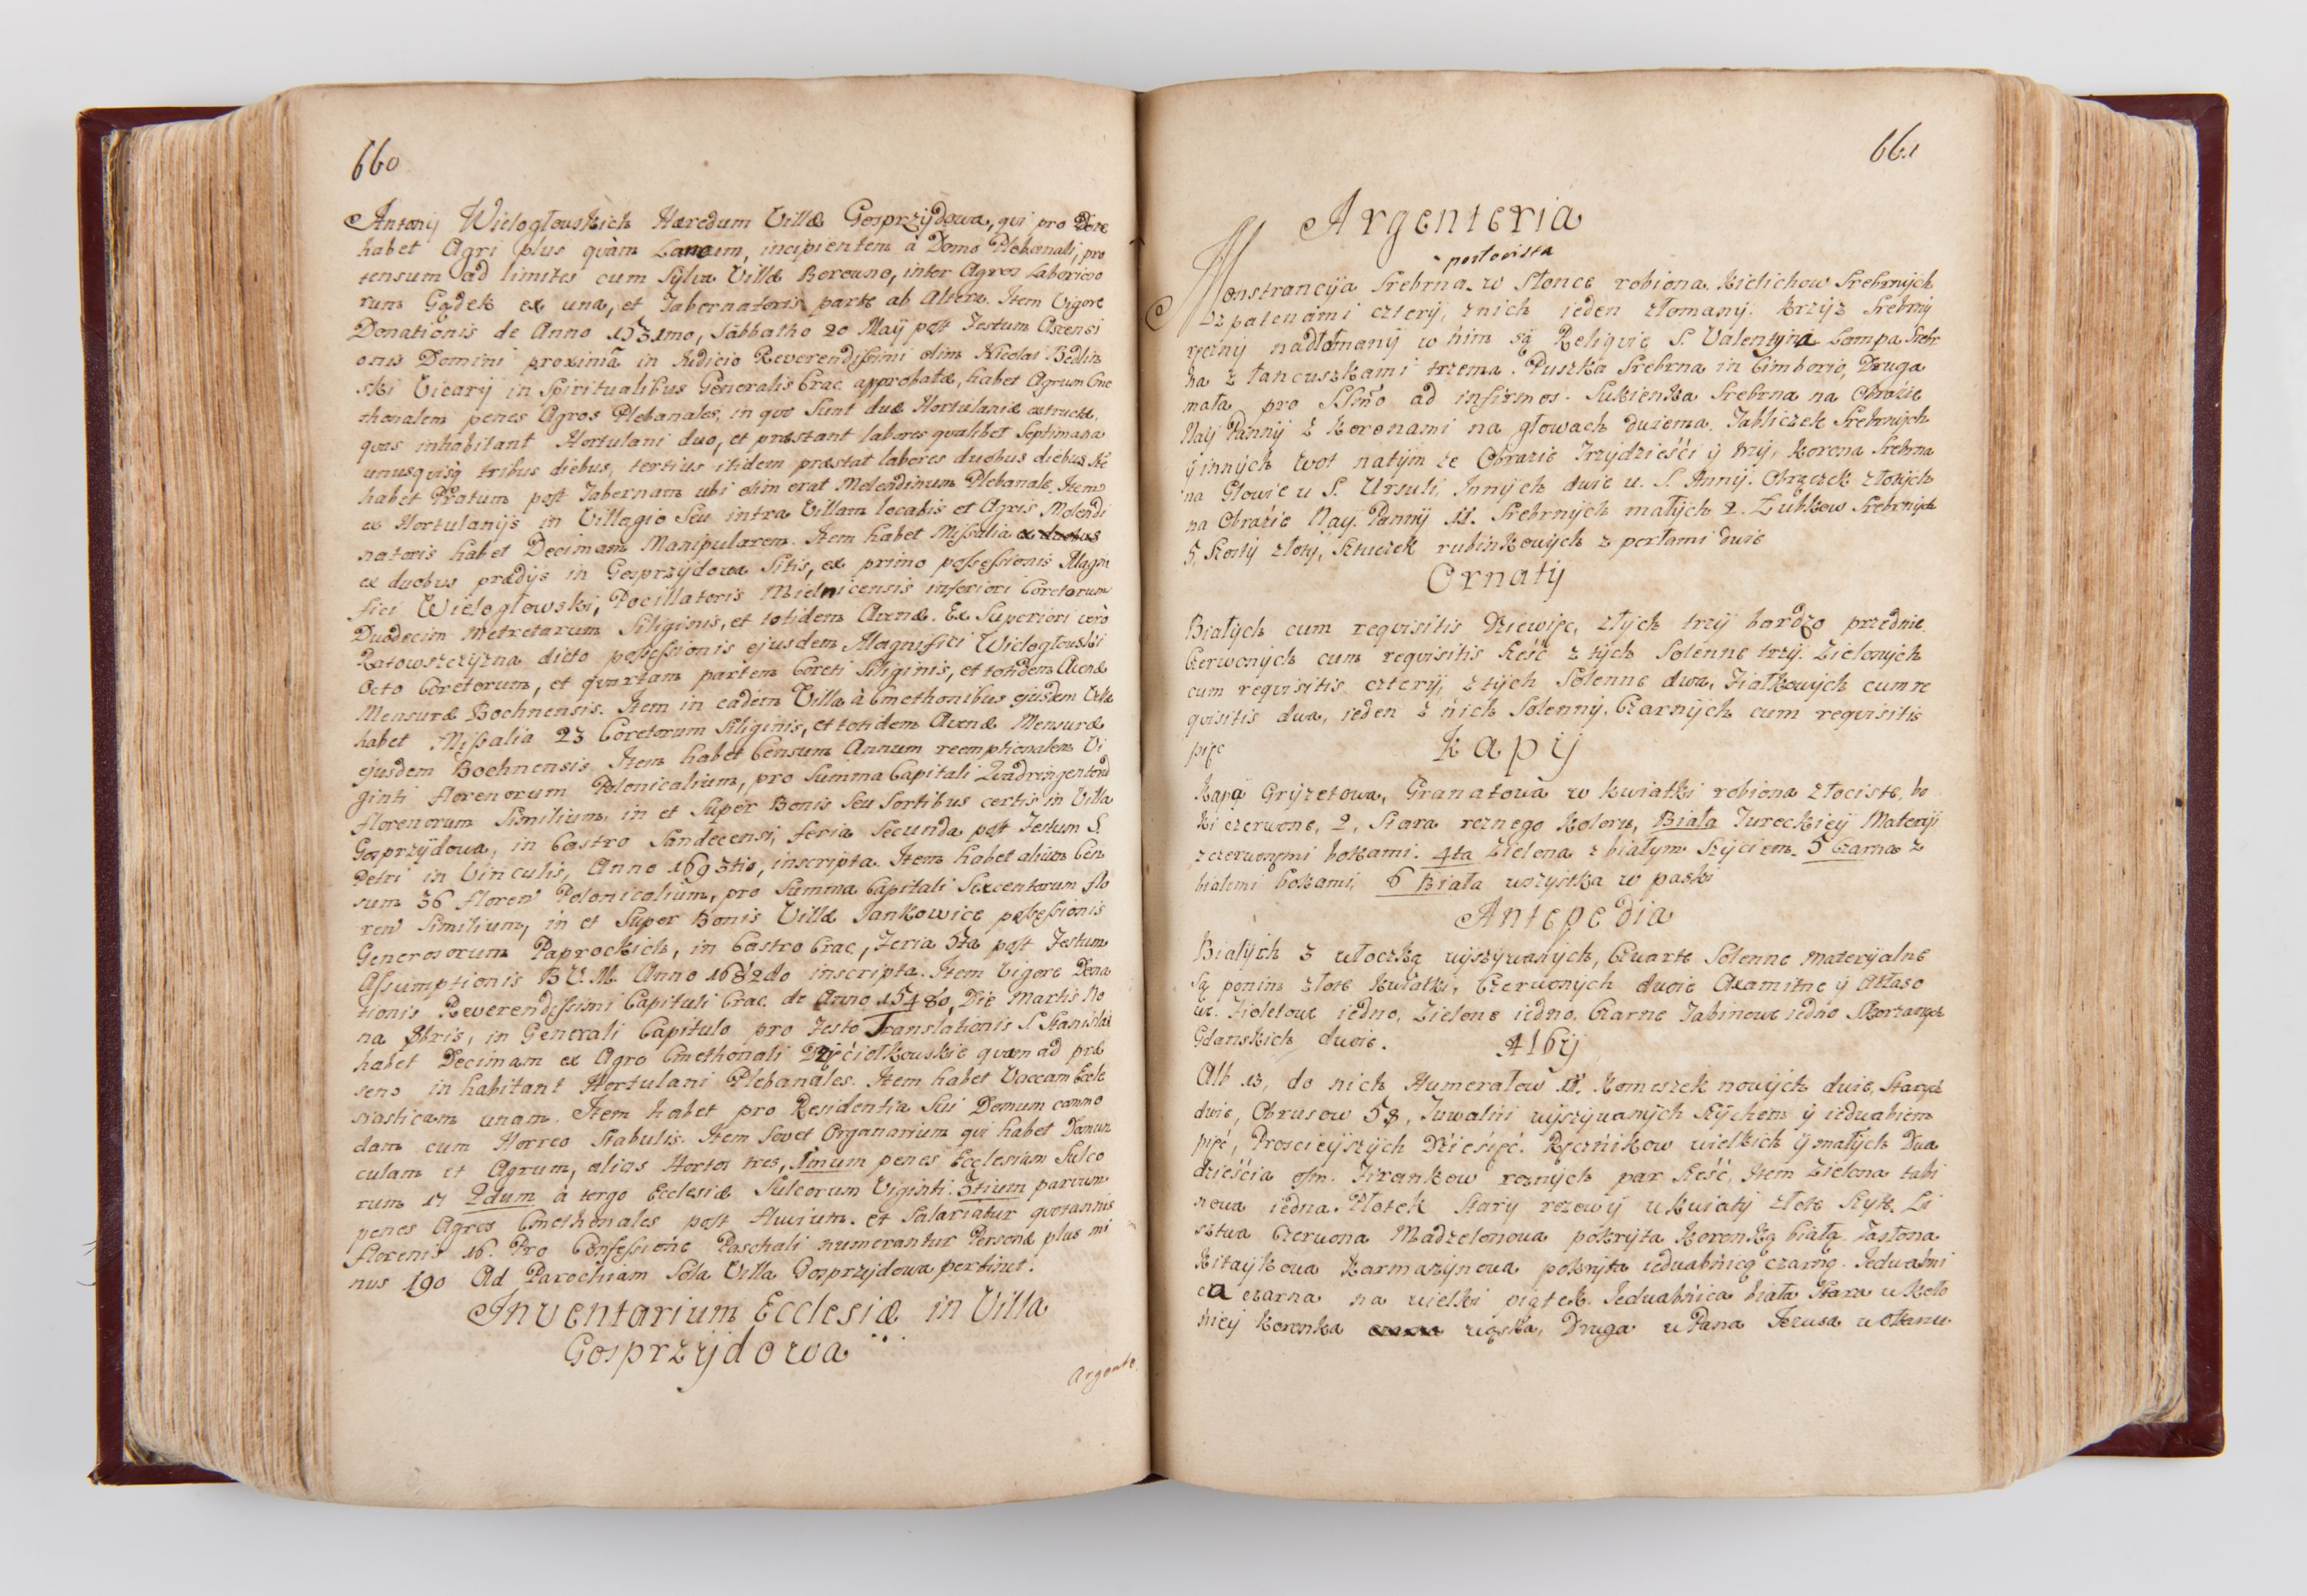 660
Antonij Wielogłowskich Hæredum Villæ Gosprzÿdowa, qui pro Dote
habet Agri plus quàm Laneum, incipientem à Domo Plebanali, pro
tensum ad limites cum Sylva Villæ Borowno, inter Agros Laborioso
rum Gądek ex una, et Tabernatoris parte ab Altera. Item Vigore
Donationis de Anno 1531mo, Sabbatho 20 Maÿ post Festum Ascensi
onis Domini proximâ in Judicio Reverendissimi olim Nicolai Bedlin
ski Vicarÿ in Spiritualibus Generalis Crac. approbatæ, habet Agrum Cme
thonalem penes Agros Plebanales, in quo sunt duæ Hortulaniæ extructæ,
quas inhabitant Hortulani duo, et præstant labores qualibet Septimana
unusquisq; tribus diebus, tertius itidem præstat labores duobus diebus. Ite
habet Pratum post Tabernam ubi olim erat Molendinum Plebanale. Item
ex Hortulanÿs in Villagio Seu intra Villam locatis et Agris Molendi
natoris habet Decimam Manipularem. Item habet Missalia ex duobus
ex duobus prædÿs in Gosprzÿdowa Sitis, ex primo possessionis Magni
fici Wielogłowski, Pocillatoris Mielnicensis inferiori Coretorum
Duodecim metretarum Siliginis, et totidem Avenæ. Ex Superiori verò
Ratowszczÿzna dicto possessionis ejusdem Magnifici Wielogłowski
Octo Coretorum, et quartam partem Coreti Siliginis, et totidem Avenæ
Mensuræ Bochnensis. Item in eâdem Villa à Cmethonibus ejusdem Villæ
habet Missalia 23 Coretorum Siliginis, et totidem Avenæ Mensuræ
ejusdem Bochnensis. Item habet Censum Annum reemptionalem Vi
ginti florenorum Polonicalium, pro Summa Capitali Quadringentorum
florenorum Similium, in et Super Bonis Seu Sortibus certis in Villa
Gosprzÿdowa, in Castro Sandecensi, feria Secunda post Festum S.
Petri in Vinculis, Anno 1693tio, inscripta. Item habet alium Cen
sum 36 floren Polonicalium, pro Summa Capitali Sexcentorum flo
ren Similium, in et Super Bonis Villæ Jankowice possessionis
Generosorum Paprockich, in Castro Crac, Feria 5ta post Festum
Assumptionis B.V.M. Anno 1682do inscripta. Item Vigore Dona
tionis Reverendissimi Capituli Crac. de Anno 1548o, Die Martis No
na 8bris, in Generali Capitulo pro Festo Translationis S Stanislai
habet Decimam ex Agro Cmethonali quem ad præ
sens inhabitant Hortulani Plebanales. Item habet Vaccam Eccle
siasticam unam. Item habet pro Residentia Sui Domum commo
dam cum Horreo Stabulis. Item fovet Organarium qui habet Domun
culam et Agrum, alias Hortos tres, 1mum penes Ecclesiam Sulco
rum 17 2dum à tergo Ecclesiæ Sulcorum Viginti. 3tium parvum
penes Agros Cmethonales post fluvium. et Salariatur quotannis
florenis 16. Pro Confessione Paschali numerantur Personæ plus mi
nus 190 Ad Parochiam Sola Villa Gosprzÿdowa pertinet.
Inventarium Ecclesiæ in Villa
Gosprzÿdowa
Argente
661
Argenteria
pozłocista
Monstrancÿa Srebrna w Słonce robiona. Kielichow Srebrnÿch
Z patenami czterÿ, znich ieden złomanÿ. Krzÿż Srebrnÿ
ręcznÿ nadłamanÿ w nim są Religvię S. Valentÿna Lampa Srebr
na z Łancuszkami trzema. Puszka Srebrna in Cimborio, Druga
mała pro SSmo ad infirmos. Sukienka Srebrna na Obrazie
Naÿ Pannÿ z Koronami na głowach dwiema. Tabliczek Srebrnÿch
ÿ innÿch Wot natÿm ze Obrazie Trzÿdzieści ÿ trzÿ, Korona Srebrna
na Głowie u S. Ursuli, Innÿch dwie u. S. Annÿ. Obrączek złotÿch
na Obrazie Naÿ. Pannÿ 11. Srebrnÿch małÿch 2. Zubkow Srebrnÿch
5, złotÿ, Sztuczek rubinkowÿch z perłami dwie
Ornatÿ
Białÿch cum reqvisitis Dziewięc, ztÿch trzÿ bardzo przednie.
Czerwonÿch cum reqvisitis sześć z tÿch Solenne trzÿ. Zielonÿch
cum reqvisitis czterÿ, z tÿch Solenne dwa, Fiałkowÿch cum re
qvisitis dwa, ieden z nich Solennÿ. Czarnÿch cum reqvisitis
pięc
Kapÿ
Kapa Grÿzetowa, Granatowa w kwiatki robiona złociste, bo
ki czerwone, 2, Stara roznego koloru, Biała Tureckieÿ Materÿi
z czerwonemi bokami. 4ta Zielona z białÿm szÿciem. 5 Czarna z
białemi bokami, 6 Biała wszÿstka w paski
Antepedia
Białÿch 3 włoczką wÿszÿwanÿch, Czwarte Solenne materÿalne
Są ponim złote kwiatki, Czerwonÿch dwoie Axamitne ÿ Atłaso
we. Fioletowe iedno, Zielone iedno. Czarne Tabinowe iedno Skorzanÿch
Gdanskich dwoie.
Albÿ
Alb 13, do nich Humerałow 11. Komeszek nowÿch dwie, Starÿch
dwie, Obrusow 58, Tuwalni wÿszÿwanÿch sÿchem ÿ iedwabiem
pięć, Proscieÿszÿch Dziesięć. Ręcznikow wielkich ÿ małÿch Dwa
dzieścia osm. Firankow roznÿch par sześć, Item Zielona tabi
nowa iedna. Płotek starÿ rozowÿ w kwiatÿ złote szÿte. Li
sztwa Czerwona Madzelonowa pokrÿta koronką białą. Zasłona
Kitaÿkowa Karmazÿnowa pokrÿta iedwabnicą czarną. Iedwabni
ca czarna na wielki piątek. Iedwabnica biała Stara w koło
nieÿ koronka wąska, Druga u Pana Jezusa w ołtarzu